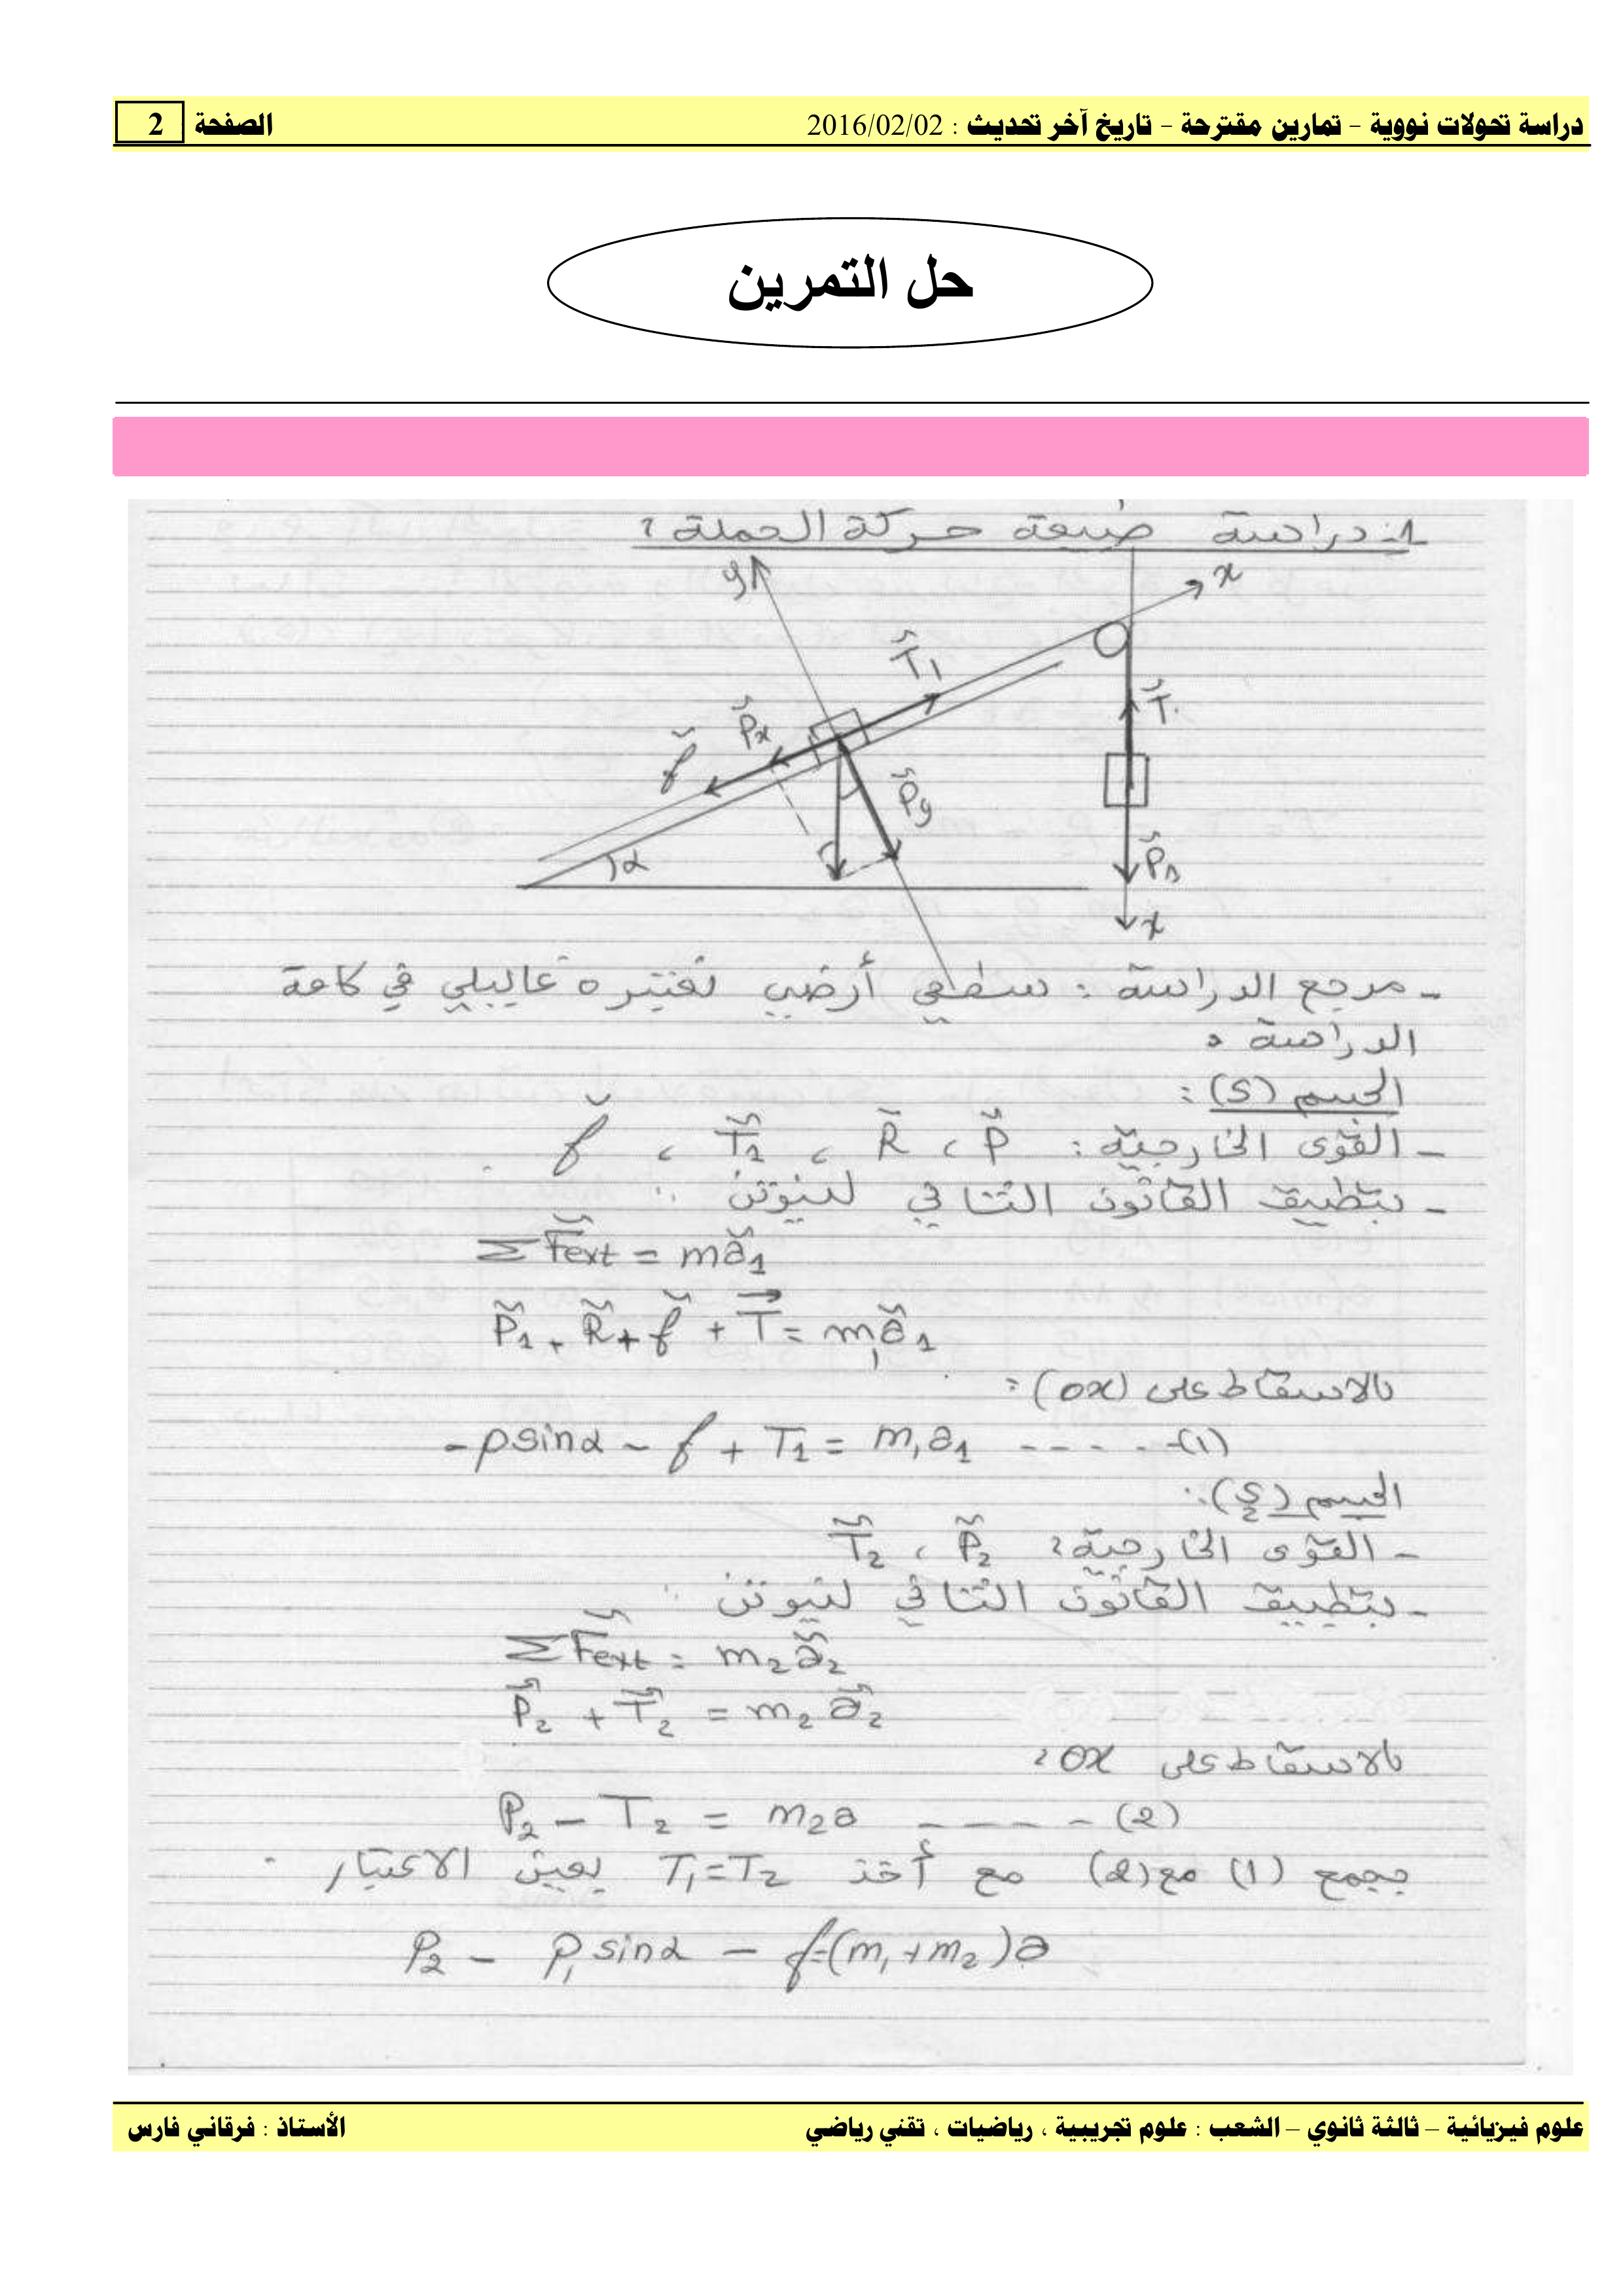 دراسة تحولات نووية – تمارين مقترحة – تاريخ آخر تحديث : 2016/02/02 الصفحة 2
حل التمرين
1- دراسة طبيعة حركة الجملة :
y
x
T1
T
Px
f
Py
α
x
- مرجع الدراسة : سطحي أرضي نعتبره غاليلي في كامة
الدراسة .
الجسم (S) :
- القوى الخارجية : P ، R ، T1 ، f
- بتطبيق القانون الثاني لنيوتن :
ΣFext = ma1
P1 + R + f + T = m1a1
بالاسقاط على (ox) :
-psinα - f + T1 = m1a1 ----- (1)
الجسم (S2) :
- القوى الخارجية : P2 ، T2
- بتطبيق القانون الثاني لنيوتن :
ΣFext = m2a2
P2 + T2 = m2a2
بالاسقاط على ox :
P2 - T2 = m2a ----- (2)
بجمع (1) مع (2) مع أخذ T1=T2 بعين الاعتبار .
P2 - P1 sinα - f = (m1+m2)a
علوم فيزيائية – ثالثة ثانوي – الشعب : علوم تجريبية ، رياضيات ، تقني رياضي الأستاذ : فرقاني فارس